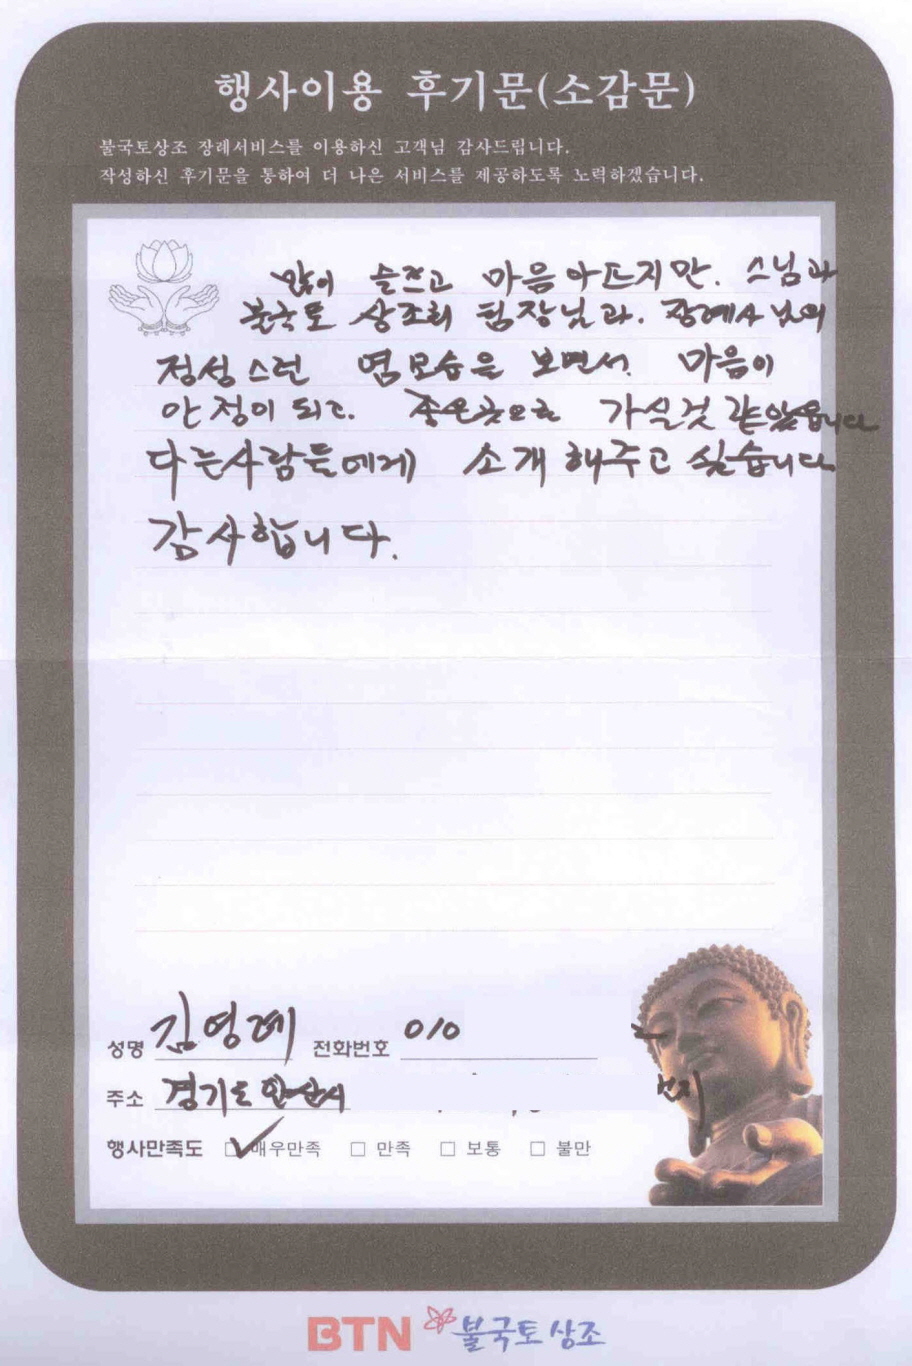 행사이용 후기문(소감문)
불국토상조 장례서비스를 이용하신 고객님 감사드립니다.
작성하신 후기문을 통하여 더 나은 서비스를 제공하도록 노력하겠습니다.
많이 슬프고 마음아프지만. 스님과
불국토 상조회 팀장님과. 장례사님의
정성스런 염모습을 보면서. 마음이
안정이 되고. 좋은곳으로 가실것 같았습니다
다른사람들에게 소개해주고 싶습니다
감사합니다.
성명 김영례 전화번호 010
주소 경기도 안산시 번지
행사만족도 ☑ 매우만족 □ 만족 □ 보통 □ 불만
BTN 불국토상조